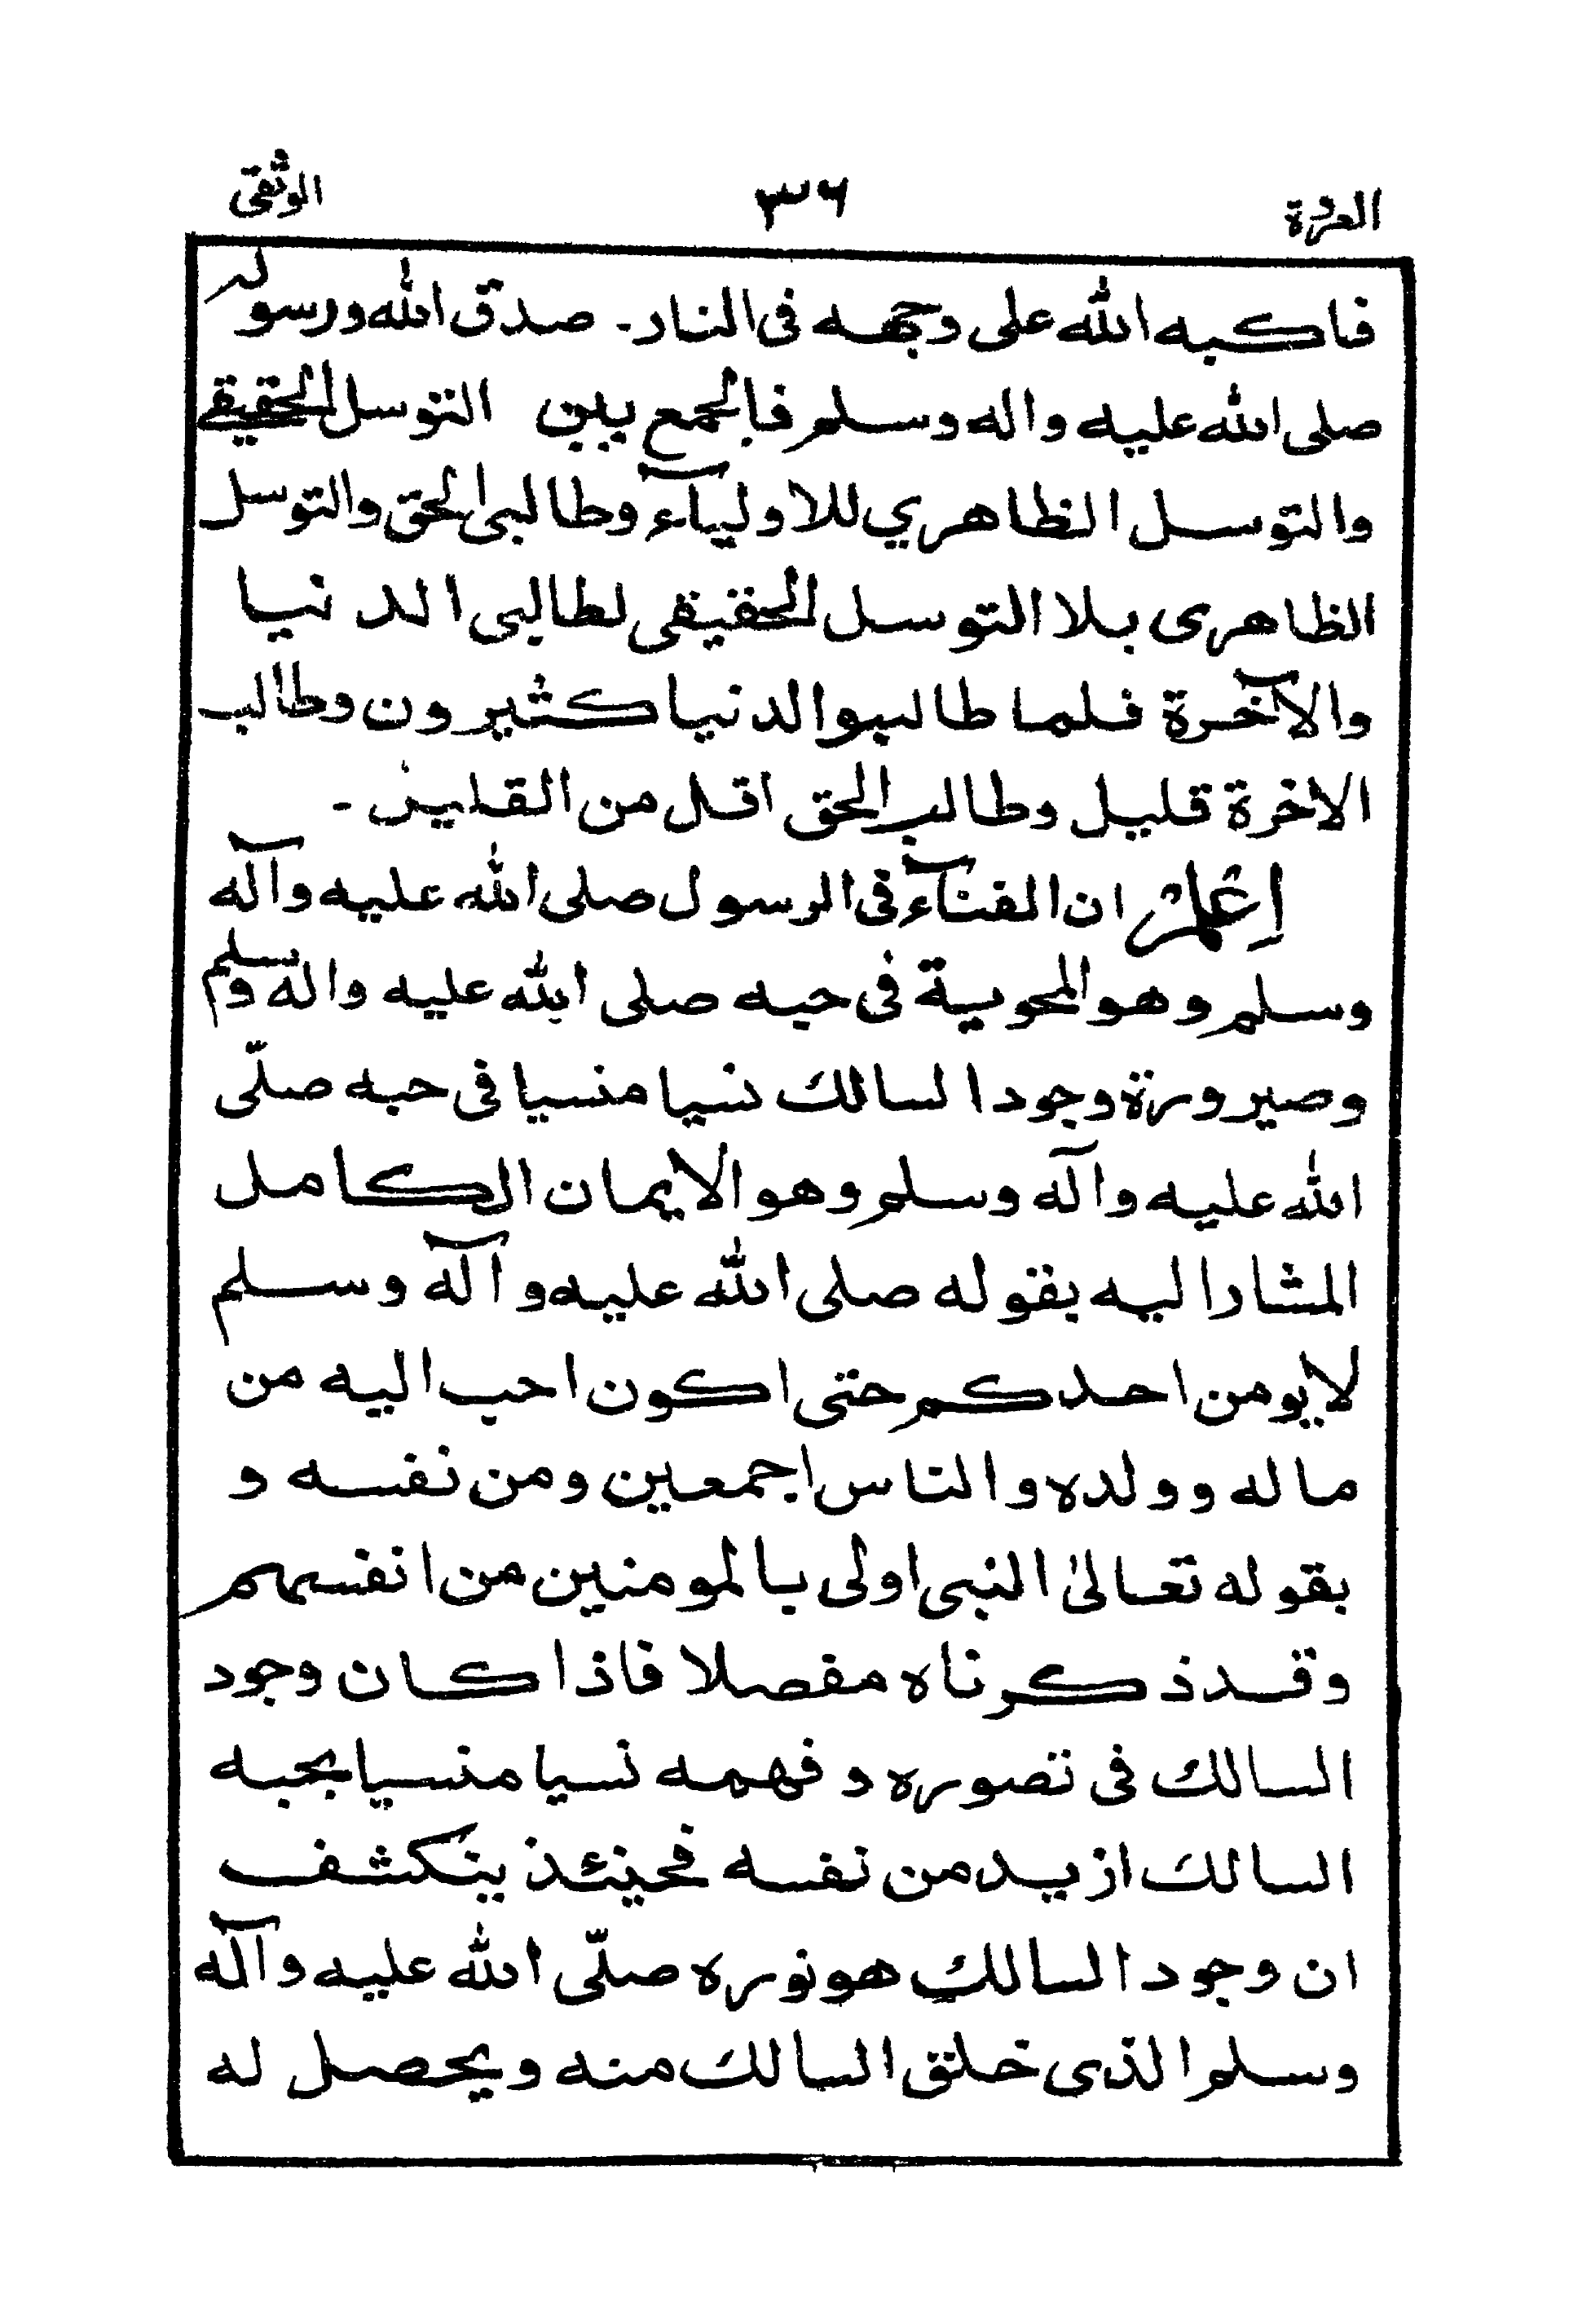 العروة ٣٦ الوثقى
فاكبه الله على وجهه فى النار۔ صدق الله ورسوله
صلى الله عليه واله وسلم فالجمع بين التوسل الحقيقي
والتوسل الظاهري للاوليآء وطالبى الحق والتوسل
الظاهرى بلا التوسل الحقيقى لطالبى الدنيا
والآخرة فلما طالبوا الدنيا كثيرون وطالب
الاخرة قليل وطالب الحق اقل من القليل۔
اِعْلَمْ ان الفنآء فى الرسول صلى الله عليه وآله
وسلم وهو المحوية فى حبه صلى الله عليه واله وسلم
وصيرورة وجود السالك نسيا منسيا فى حبه صلّى
الله عليه وآله وسلم وهو الايمان الكامل
المشار اليه بقوله صلى الله عليه وآله وسلم
لا يومن احدكم حتى اكون احب اليه من
ماله وولده والناس اجمعين ومن نفسه و
بقوله تعالىٰ النبى اولى بالمومنين من انفسهم
وقد ذكرناه مفصلا فاذا كان وجود
السالك فى تصوره و فهمه نسيا منسيا بحبه
السالك ازيد من نفسه فحينئذ ينكشف
ان وجود السالك هو نوره صلّى الله عليه وآله
وسلم الذى خلق السالك منه ويحصل له